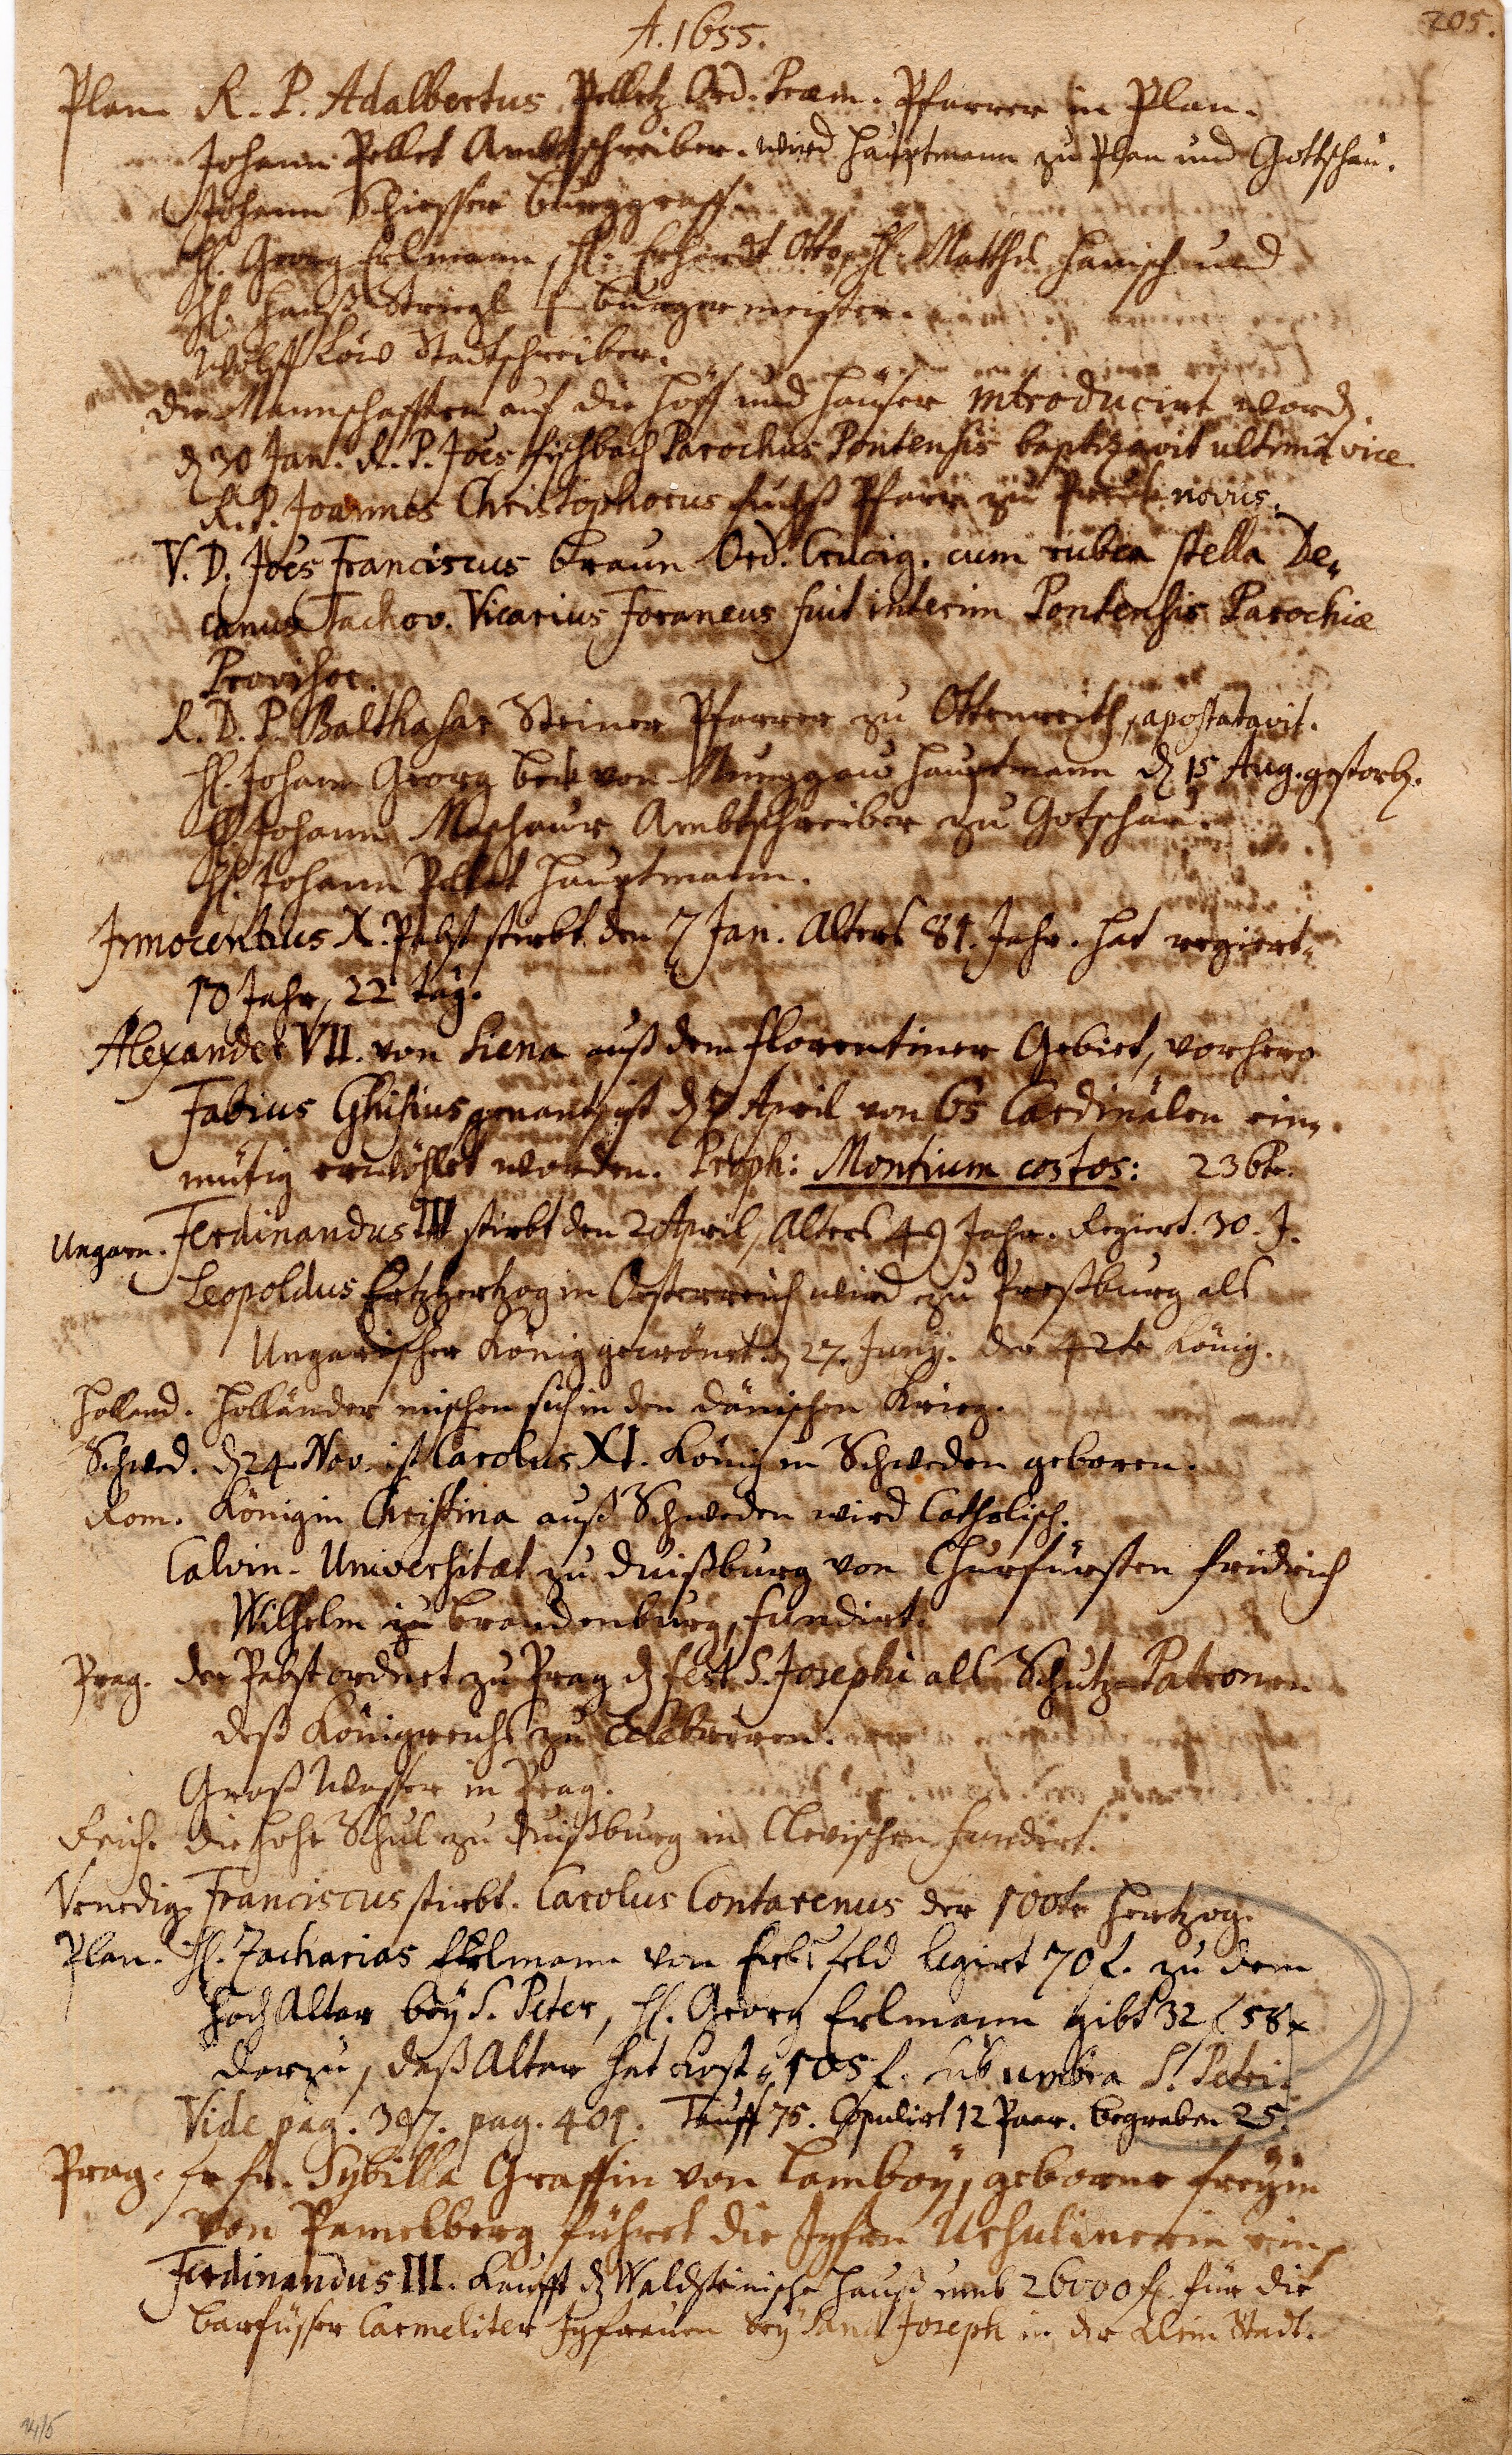 205.
A. 1655.
Plan R. P. Adalbertus Pelletz Ord. Præm. Pfarrer in Plan.
Johann Pellet Ambtschreiber. wird Hauptmann zu Plan und Gottschau.
Johann Schiesser Burggraff.
H. Georg Erlmann, H. Erhardt Otto, H. Matthes Hanisch und
H. Hanß Striegl Burgermeister.
Wolff Löw Stadtschreiber.
Die Mannschafften auf die Höff und Häuser introducirt word.
d 30 Jan. R. P. Joes Fischbach Parochus Pontensis baptizavit ultimâ vice
R. P. Joannes Christophorus Fuchß Pfarr zu novus.
V. D. Joes Franciscus Braun Ord. Crucig. cum rubea stella De„
canus Tachov. Vicarius Foraneus fuit interim Pontensis Parochiæ
Provisor.
R. D. P. Balthasar Steiner Pfarrer zu Ottenreith, apostatavit.
H. Johann Georg Beck von Hauptmann d 15 Aug. gestorb.
H Johann Maschaur Ambtschreiber zu Gotschau.
H. Johann Pellet Hauptmann.
Innocentius X. Pabst stirbt den 7 Jan. Alters 81. Jahr. hat regiert„
10 Jahr, 22 tag.
Alexander VII. von Siena auß dem Florentiner Gebiet, vorhero
Fabius Ghisius genant, ist d 7 April von 65 Cardinälen ein„
mütig erwöhlet worden. Proph: Montium costos: 236te.
Ungarn. Ferdinandus III stirbt den 2 April, Alters 49 Jahr. Regiert. 30. J.
Leopoldus Ertzhertzog in Österreich wird zu Preßburg als
Ungarischer König gecrönet. d 27. Junij. der 42te König.
Holland. Holländer mischen sich in den dänischen Krieg.
Schwed. d 24. Nov. ist Carolus XI. König in Schweden geboren.
Rom. Königin Christina auß Schweden wird Catholisch.
Calvin. Universitæt zu Duißburg von Churfürsten Fridrich
Wilhelm zu Brandenburg, fundirt.
Prag. der Pabst ordnet zu Prag d fest S. Josephi als Schutz-Patronen
deß Königreichs zu celebriren.
Groß Wasser in Prag.
Reich. Die hohe Schul zu Duißburg in Clevischen fundirt.
Venedig. Franciscus stirbt. Carolus Contarenus der 100te Hertzog.
Plan. H. Zacharias Erlmann von feld legirt 70 f. zu dem
Hoch Altar bey S. Peter, H. Georg Erlmann gibt 32 f 58 x
darzu, daß Altar hat kost„ 105 f. sub umbra S. Petri.
Vide pag. 397. pag. 401. Tauff 75. Copulirt 12 Paar. begraben 25.
Prag. fr. fr. Sybilla Graffin von Lamboy, geborne freyin
von Pamelberg führet die Jgfrn Ursulinerin ein.
Ferdinandus III. kaufft d Waldsteinische Hauß umb 26000 f. für die
Barfüsser Carmeliter Jgfrauen bey Sanct Joseph in der Klein Stadt.